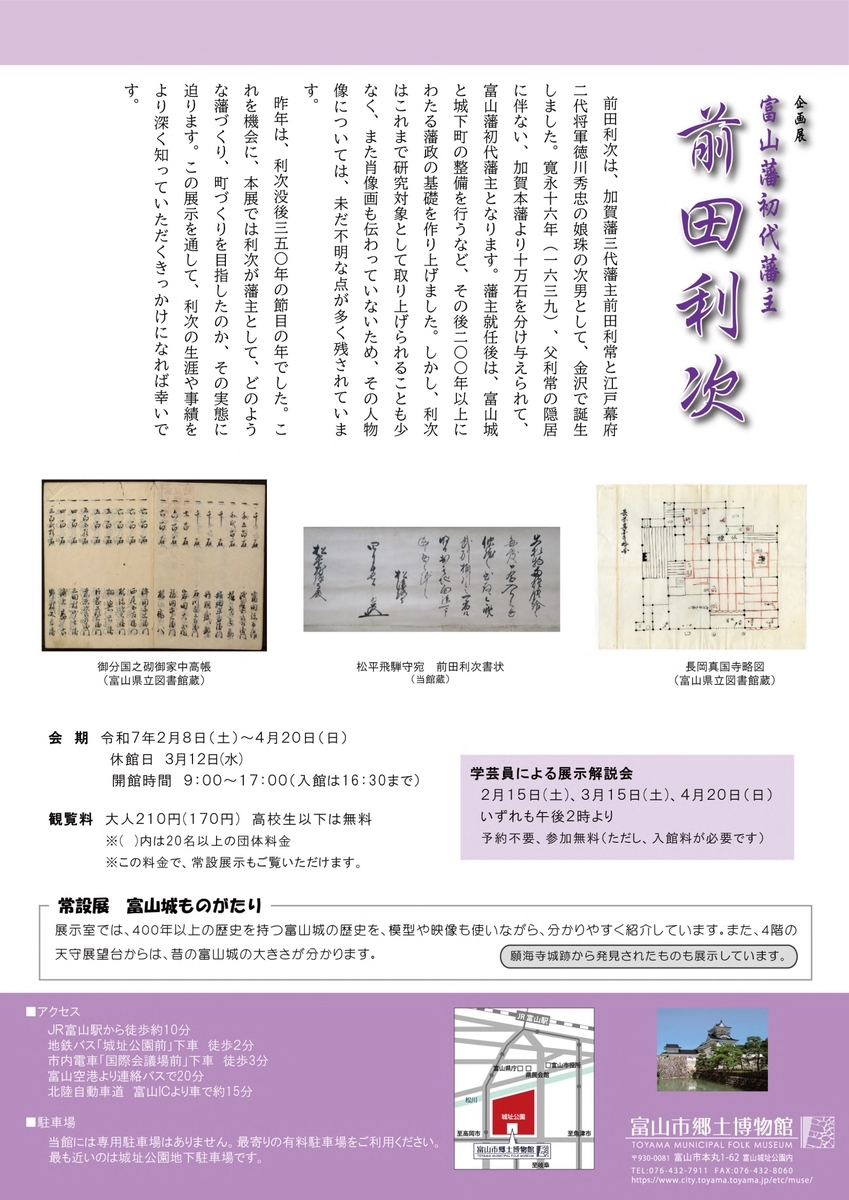 企画展
富山藩初代藩主
前田利次
前田利次は、加賀藩三代藩主前田利常と江戸幕府
二代将軍徳川秀忠の娘珠の次男として、金沢で誕生
しました。寛永十六年（一六三九）、父利常の隠居
に伴ない、加賀本藩より十万石を分け与えられて、
富山藩初代藩主となります。藩主就任後は、富山城
と城下町の整備を行うなど、その後二〇〇年以上に
わたる藩政の基礎を作り上げました。しかし、利次
はこれまで研究対象として取り上げられることも少
なく、また肖像画も伝わっていないため、その人物
像については、未だ不明な点が多く残されていま
す。
昨年は、利次没後三五〇年の節目の年でした。こ
れを機会に、本展では利次が藩主として、どのよう
な藩づくり、町づくりを目指したのか、その実態に
迫ります。この展示を通して、利次の生涯や事績を
より深く知っていただくきっかけになれば幸いで
す。
御分国之砌御家中高帳
（富山県立図書館蔵）
松平飛騨守宛　前田利次書状
（当館蔵）
長岡真国寺略図
（富山県立図書館蔵）
会　期　令和7年2月8日（土）～4月20日（日）
休館日　3月12日(水)
開館時間　9：00～17：00（入館は16：30まで）
観覧料　大人210円(170円)　高校生以下は無料
※(　)内は20名以上の団体料金
※この料金で、常設展示もご覧いただけます。
学芸員による展示解説会
2月15日(土)、3月15日(土)、4月20日(日)
いずれも午後2時より
予約不要、参加無料（ただし、入館料が必要です）
常設展　富山城ものがたり
展示室では、400年以上の歴史を持つ富山城の歴史を、模型や映像も使いながら、分かりやすく紹介しています。また、4階の
天守展望台からは、昔の富山城の大きさが分かります。
願海寺城跡から発見されたものも展示しています。
■アクセス
JR富山駅から徒歩約10分
地鉄バス「城址公園前」下車　徒歩2分
市内電車「国際会議場前」下車　徒歩3分
富山空港より連絡バスで20分
北陸自動車道　富山ICより車で約15分
■駐車場
当館には専用駐車場はありません。最寄りの有料駐車場をご利用ください。
最も近いのは城址公園地下駐車場です。
JR富山駅
富山県庁
富山市役所
県民会館
松川
城址公園
至高岡市
至魚津市
富山市郷土博物館
至岐阜
富山市郷土博物館
TOYAMA MUNICIPAL FOLK MUSEUM
〒930-0081　富山市本丸1-62　富山城址公園内
TEL:076-432-7911　FAX:076-432-8060
https://www.city.toyama.toyama.jp/etc/muse/